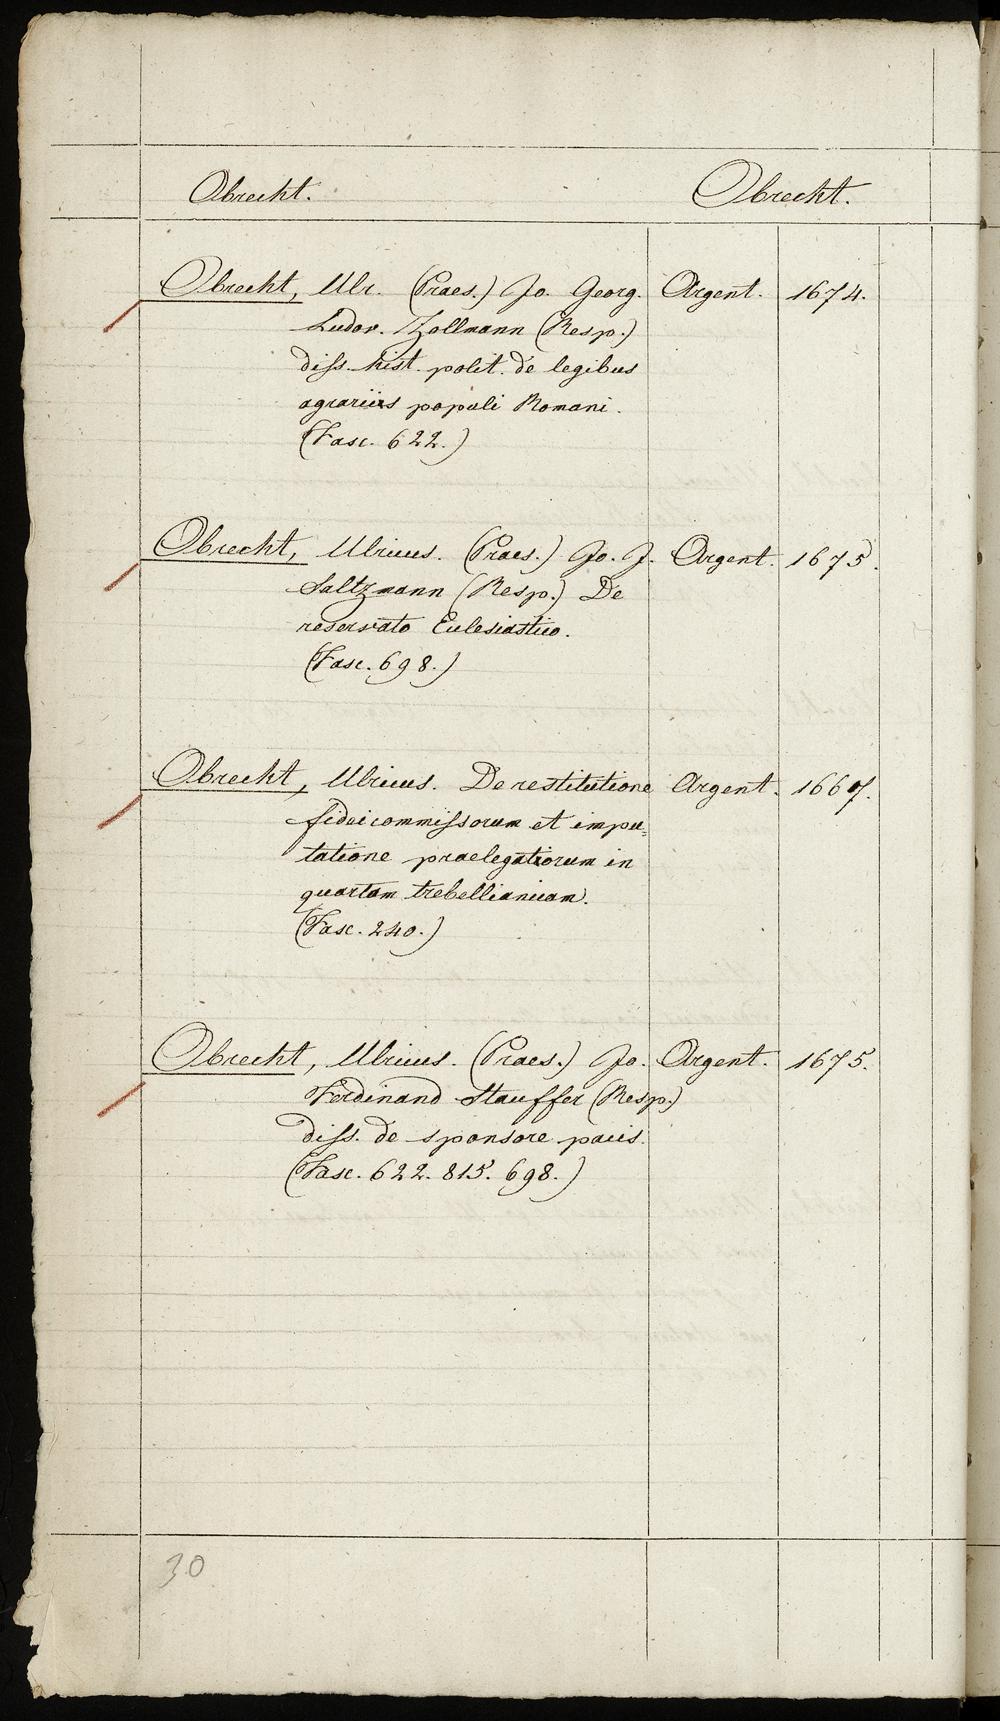 Obrecht. Obrecht.
Obrecht, Ulr. (Praes.) Jo. Georg. Argent. 1674.
Ludov. Zollmann (Resp.)
diss. hist. polit. de legibus
agrariis populi Romani.
(Fasc. 622.)
Obrecht, Ulricus. (Praes.) Jo. J. Argent. 1675.
Saltzmann (Resp.) De
reservato Ecclesiastico.
(Fasc. 698.)
Obrecht, Ulricus. De restitutione Argent. 1667.
fideicommissorum et impu=
tatione praelegatorum in
quartam trebellianicam.
(Fasc. 240.)
Obrecht, Ulricus. (Praes.) Jo. Argent. 1675.
Ferdinand Stauffer (Resp.)
diss. de sponsore pacis.
(Fasc. 622. 815. 698.)
30